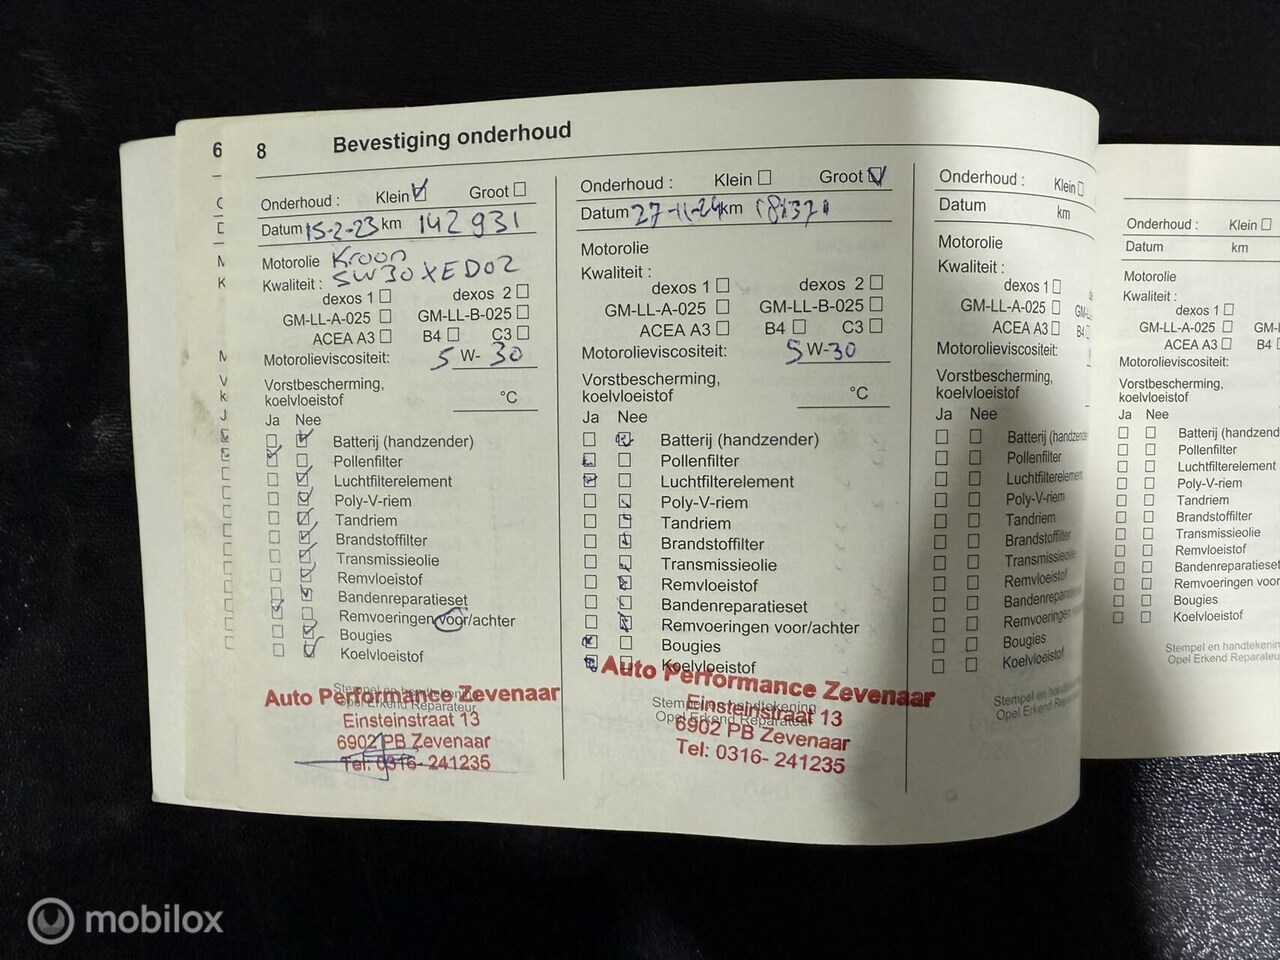 6
8 Bevestiging onderhoud
Onderhoud : Klein Groot
Datum 15-2-23 km 142931
Motorolie Kroon
Kwaliteit : 5W30 XED02
dexos 1 dexos 2
GM-LL-A-025 GM-LL-B-025
ACEA A3 B4 C3
Motorolieviscositeit: 5 W- 30
Vorstbescherming,
koelvloeistof °C
Ja Nee
Batterij (handzender)
Pollenfilter
Luchtfilterelement
Poly-V-riem
Tandriem
Brandstoffilter
Transmissieolie
Remvloeistof
Bandenreparatieset
Remvoeringen voor/achter
Bougies
Koelvloeistof
Stempel en handtekening
Opel Erkend Reparateur
Auto Performance Zevenaar
Einsteinstraat 13
6902 PB Zevenaar
Tel: 0316- 241235
Onderhoud : Klein Groot
Datum 27-11-24 km
Motorolie
Kwaliteit :
dexos 1 dexos 2
GM-LL-A-025 GM-LL-B-025
ACEA A3 B4 C3
Motorolieviscositeit: 5 W-30
Vorstbescherming,
koelvloeistof °C
Ja Nee
Batterij (handzender)
Pollenfilter
Luchtfilterelement
Poly-V-riem
Tandriem
Brandstoffilter
Transmissieolie
Remvloeistof
Bandenreparatieset
Remvoeringen voor/achter
Bougies
Koelvloeistof
Stempel en handtekening
Opel Erkend Reparateur
Auto Performance Zevenaar
Einsteinstraat 13
6902 PB Zevenaar
Tel: 0316- 241235
Onderhoud : Klein
Datum km
Motorolie
Kwaliteit :
dexos 1
GM-LL-A-025 GM-LL
ACEA A3 B4
Motorolieviscositeit:
Vorstbescherming,
koelvloeistof
Ja Nee
Batterij (handzende
Pollenfilter
Luchtfilterelement
Poly-V-riem
Tandriem
Brandstoffilter
Transmissieolie
Remvloeistof
Bandenreparatieset
Remvoeringen voor
Bougies
Koelvloeistof
Stempel en handtekening
Opel Erkend Reparateur
Onderhoud : Klein
Datum km
Motorolie
Kwaliteit :
dexos 1
GM-LL-A-025 GM-
ACEA A3 B4
Motorolieviscositeit:
Vorstbescherming,
koelvloeistof
Ja Nee
Batterij (handzend
Pollenfilter
Luchtfilterelement
Poly-V-riem
Tandriem
Brandstoffilter
Transmissieolie
Remvloeistof
Bandenreparatieset
Remvoeringen voor
Bougies
Koelvloeistof
Stempel en handtekening
Opel Erkend Reparateur
mobilox